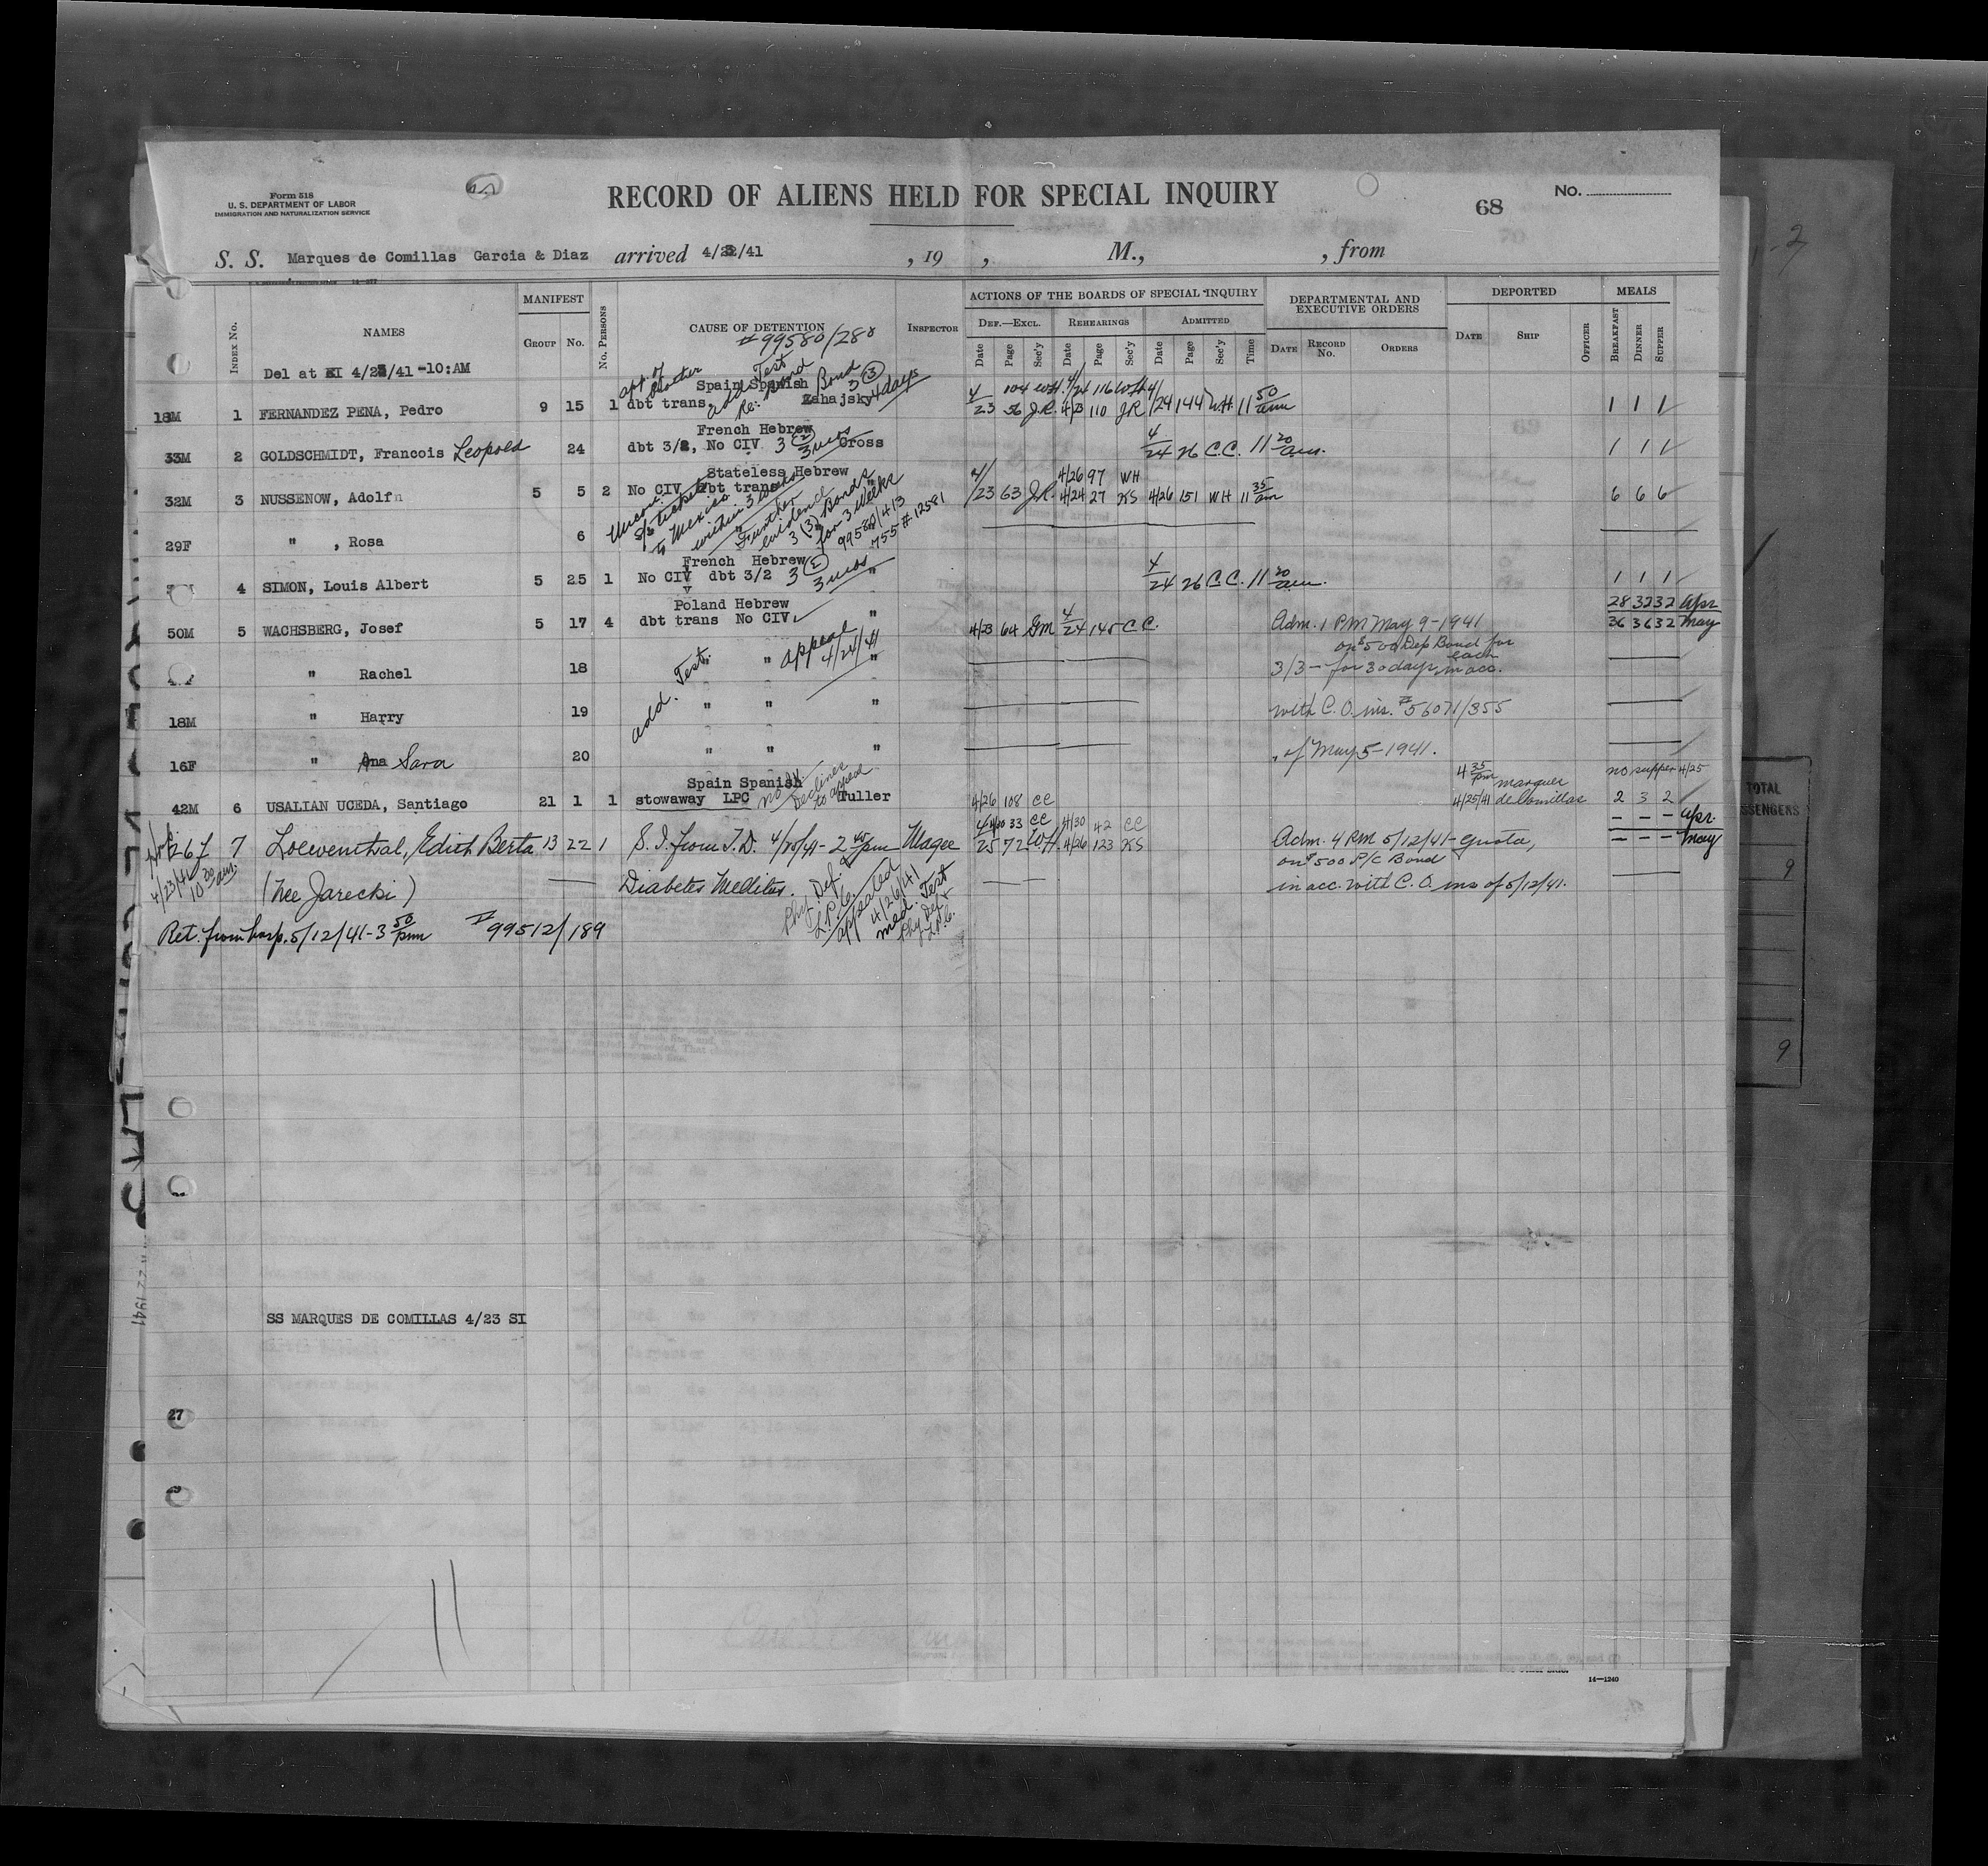 Form 518
U. S. DEPARTMENT OF LABOR
IMMIGRATION AND NATURALIZATION SERVICE
RECORD OF ALIENS HELD FOR SPECIAL INQUIRY
68
No.
S. S. Marques de Comillas Garcia & Diaz arrived 4/23/41 , 19 , M., , from
INDEX No. NAMES MANIFEST GROUP No. No. PERSONS CAUSE OF DETENTION INSPECTOR ACTIONS OF THE BOARDS OF SPECIAL INQUIRY DEPARTMENTAL AND EXECUTIVE ORDERS DEPORTED MEALS
DEF.—EXCL. REHEARINGS ADMITTED
Date Page Sec'y Date Page Sec'y Date Page Sec'y Time DATE RECORD No. ORDERS DATE SHIP OFFICER BREAKFAST DINNER SUPPER
#99580/280
Del at EI 4/23/41 -10:AM
Spain Spanish Bond 3 (3) 4 days
4 104 WH. 4/24 116 WH 4/
18M 1 FERNANDEZ PENA, Pedro 9 15 1 dbt trans. add Test Re: Bond Zahajsky 23 56 J.R. 4/23 110 JR /24 144 WH 11 50 am 1 1 1
French Hebrew
33M 2 GOLDSCHMIDT, Francois Leopold 24 dbt 3/2, No CIV 3 (2) 3 mos Cross 4/24 26 C.C. 11 20 am. 1 1 1
Stateless Hebrew
4/ 4/26 97 WH
32M 3 NUSSENOW, Adolf 5 5 2 No CIV dbt trans /23 63 J.R. 4/24 27 KS 4/26 151 WH 11 35 am 6 6 6
to Mexico within 3 weeks
Further evidence 3 (3) Bonds for 3 weeks
29F " , Rosa 6
99580/413
755 # 12581
French Hebrew
4 SIMON, Louis Albert 5 25 1 No CIV dbt 3/2 3 (2) 3 mos " 4/24 26 C.C. 11 20 am. 1 1 1
Poland Hebrew
28 32 32 Apr
50M 5 WACHSBERG, Josef 5 17 4 dbt trans No CIV " 4/23 64 GM 4/24 145 CC. Adm. 1 PM May 9-1941 36 36 32 May
on $500 Dep Bond for each
" Rachel 18 " " appeal 4/24/41 " 3/3 - for 30 days, in acc.
add. Test.
18M " Harry 19 " " " with C.O. ins. #56071/355
16F " Ana Sara 20 " " " of May 5-1941.
Spain Spanish
4 35 pm marques no supper 4/25
42M 6 USALIAN UCEDA, Santiago 21 1 1 stowaway LPC Declines to appeal Tuller 4/26 108 CC 4/25/41 de Comillas 2 3 2
33 CC 4/30 42 CC - - - Apr.
26 F 7 Loewenthal, Edith Berta 13 22 1 S.I. from T.D. 4/25/41 - 2 45 pm Magee 25 72 WH. 4/26 123 KS Adm. 4 PM 5/12/41 - Quota, - - - May
on $500 P/C Bond
4/23/41 10 30 am
(nee Jarecki) Diabetes Mellitus. in acc. with C.O. ins of 5/12/41.
Phy. Def. & L.P.C. appealed 4/26/41
med. Test Phy Def + L.P.C.
Ret. from hosp. 5/12/41 - 3 50 pm #99512/189
SS MARQUES DE COMILLAS 4/23 SI
27
14—1240
TOTAL
9
9